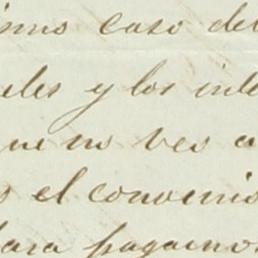 ismo caso de
eles y los inte
que no ves a
el convenio
para pagarnos